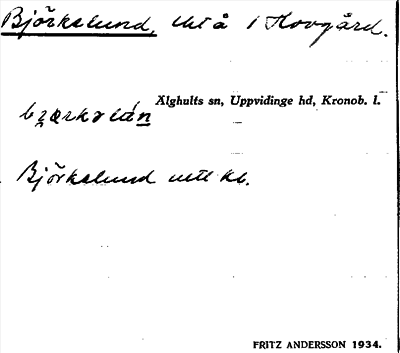 Björkelund, lht å 1 Hovgård.
Älghults sn, Uppvidinge hd, Kronob. l.
Björkelund
FRITZ ANDERSSON 1934.